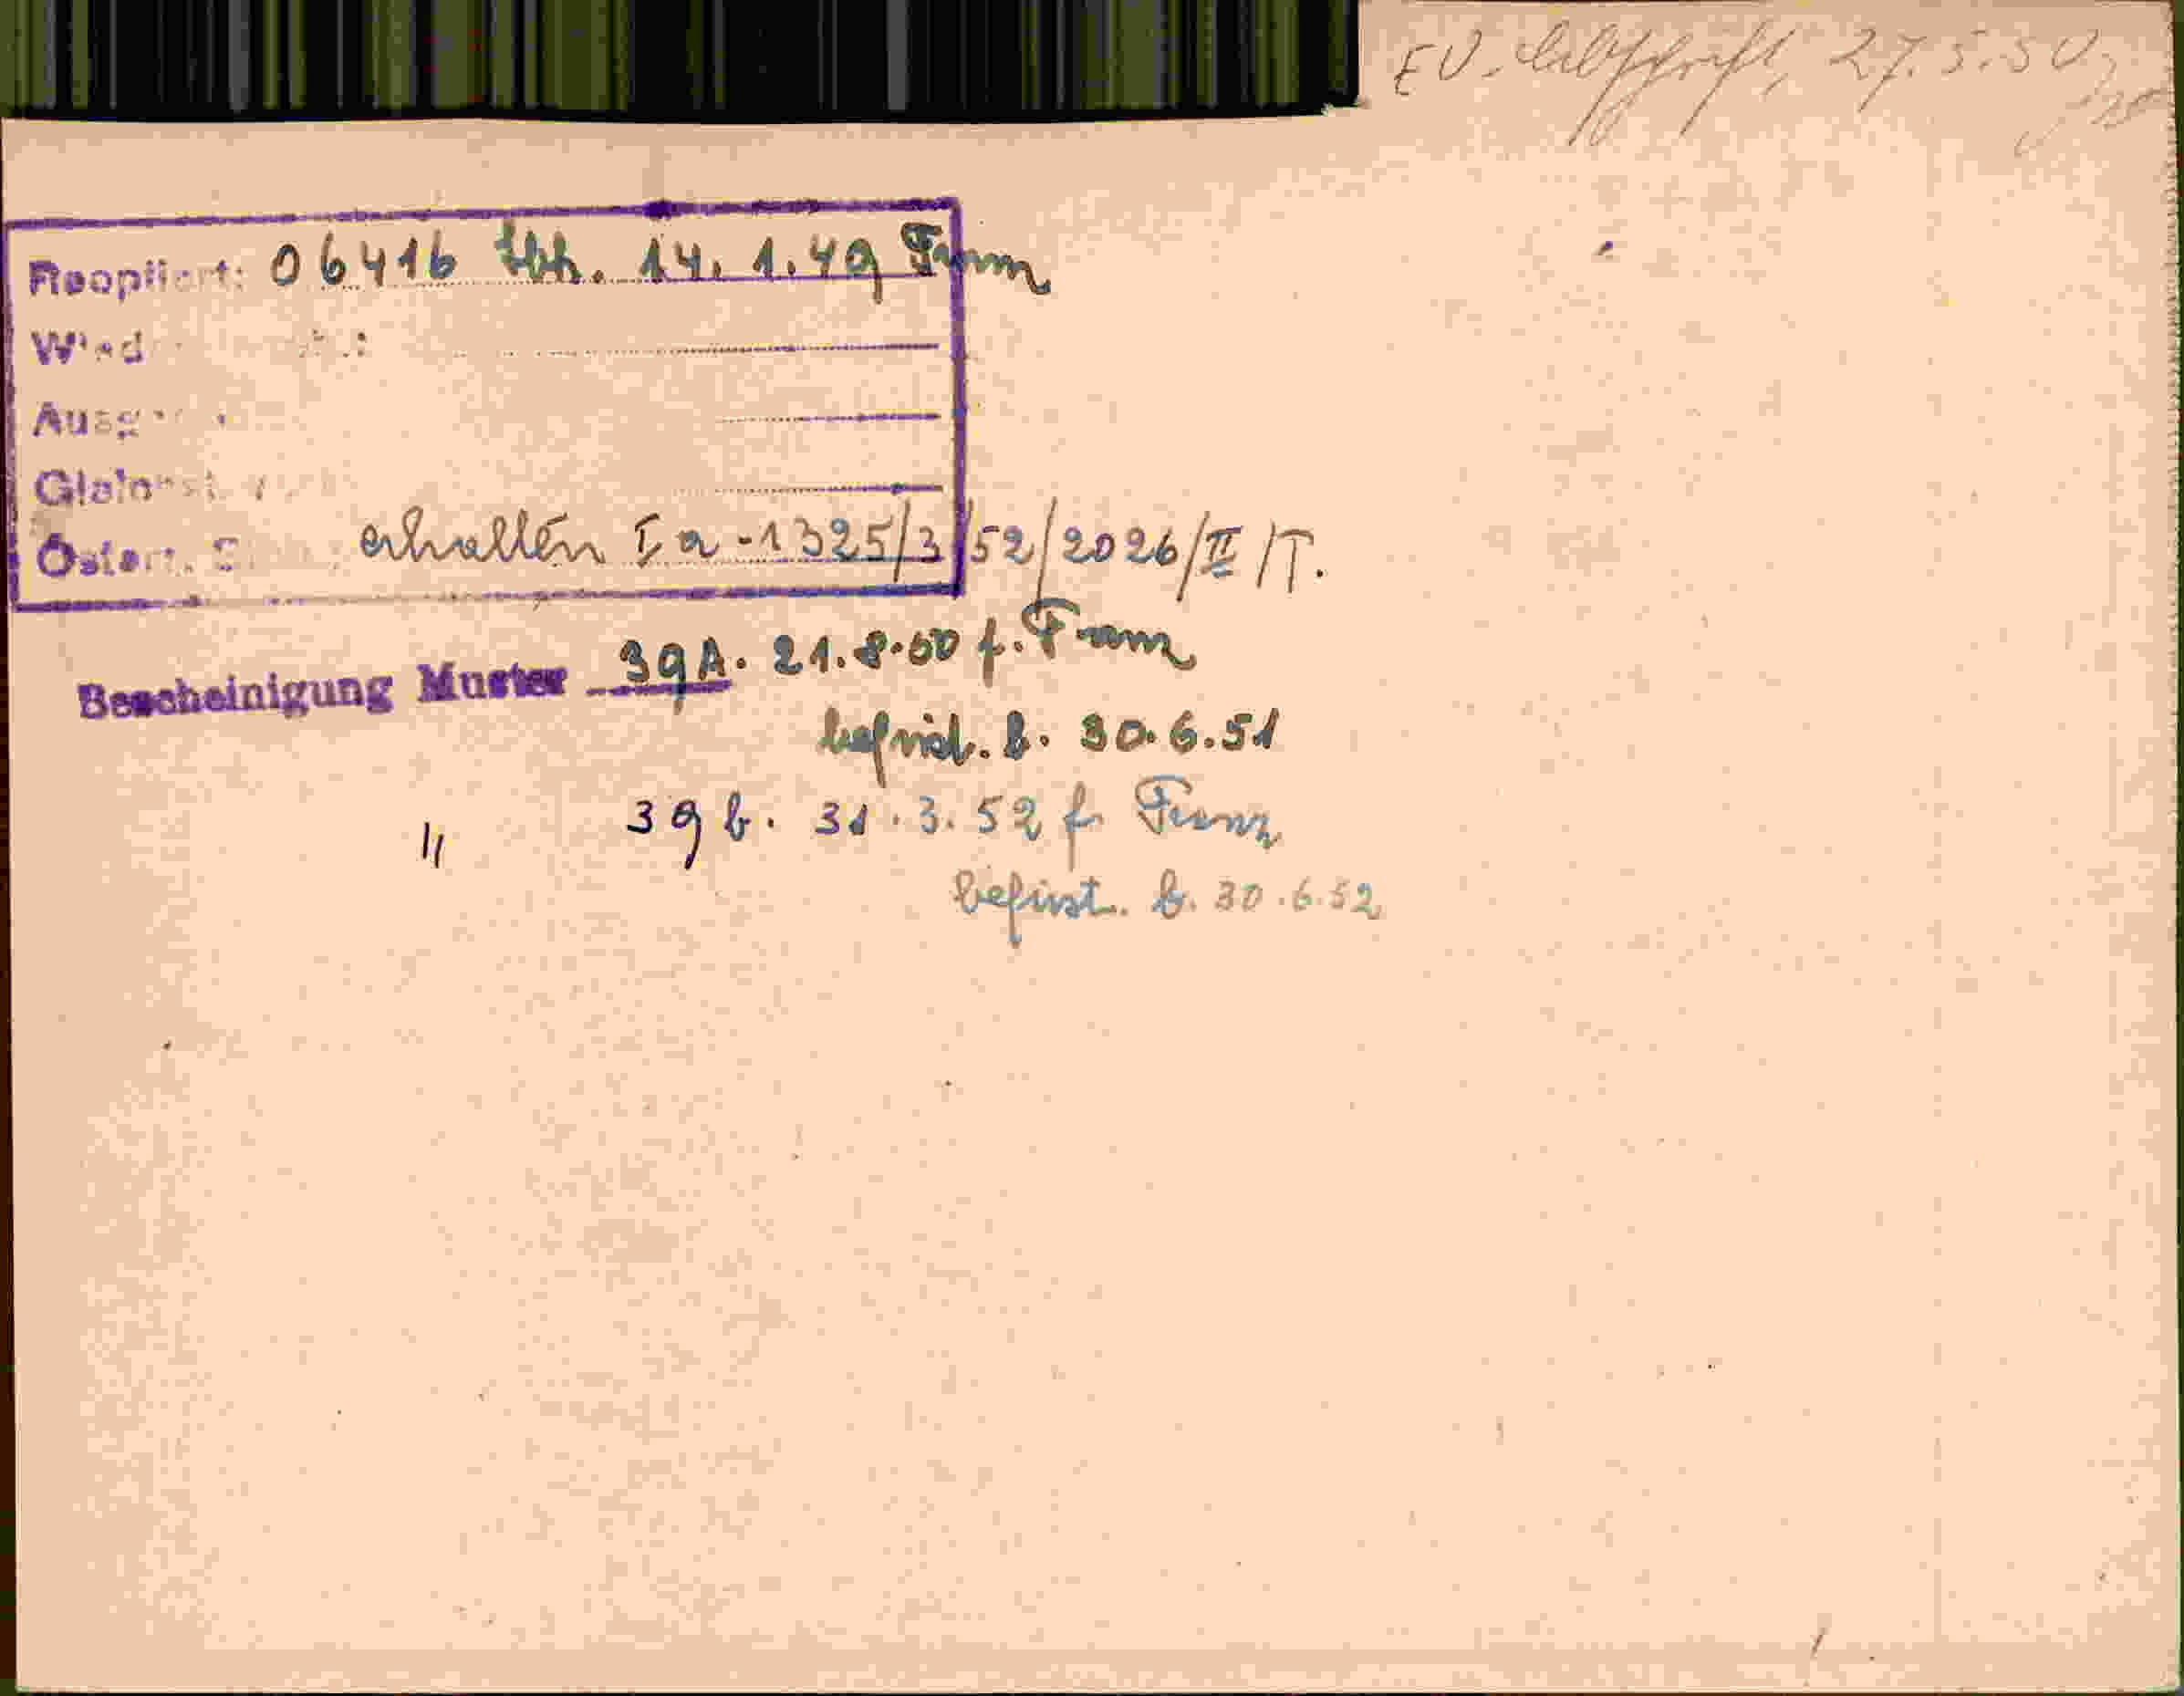 EV. Abschrift, 27.5.50
Reoptiert: 06416 14. 1. 49 Franz
Wied
Ausg
Gleichst
Österr. S erhalten I a-1325/3/52/2026/II/T.
Bescheinigung Muster 39A. 21.8.50 f. Franz
befrist. b. 30.6.51
" 39 b. 31.3.52 f. Franz
befrist. b. 30.6.52